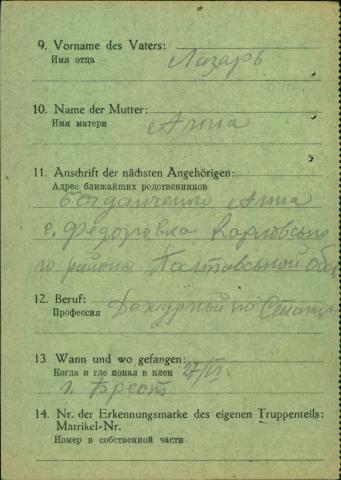 9. Vorname des Vaters:
Имя отца
Лазарь
10. Name der Mutter:
Имя матери
Анна
11. Anschrift der nächsten Angehörigen:
Адрес ближайших родственников
Богданченко Анна
с. Федоровка Карловсько
го района Полтавськой об
12. Beruf:
Профессия
Дежурный по Станци
13 Wann und wo gefangen:
Когда и где попал в плен
27/VI
г. Брест
14. Nr. der Erkennungsmarke des eigenen Truppenteils:
Matrikel-Nr.
Номер в собственной части